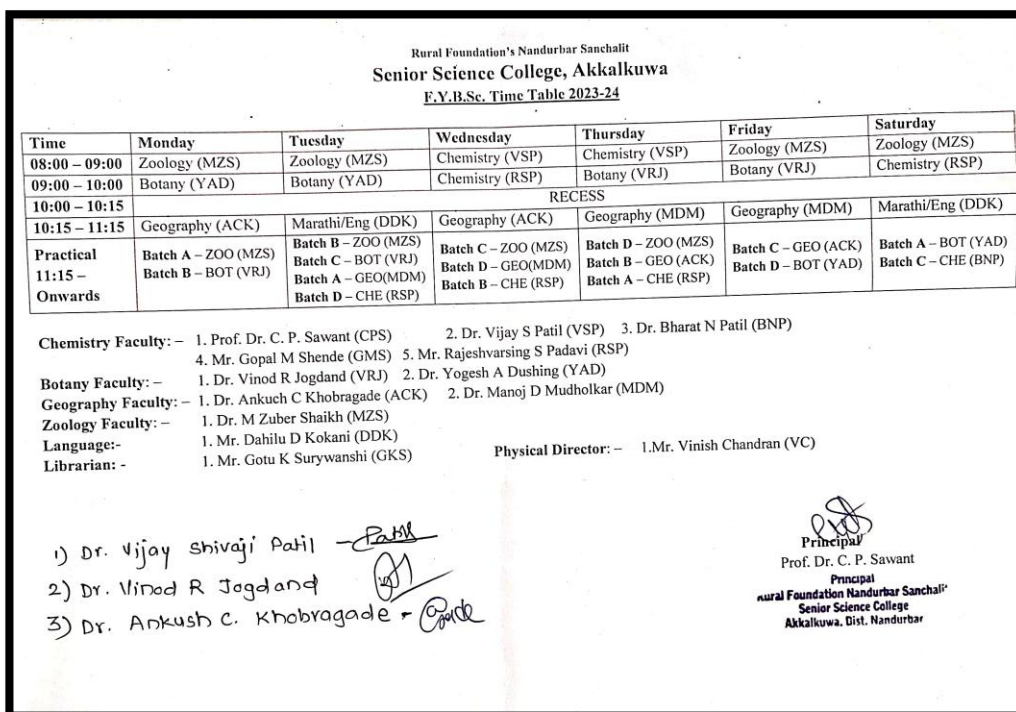 Rural Foundation's Nandurbar Sanchalit
Senior Science College, Akkalkuwa
F.Y.B.Sc. Time Table 2023-24
Time Monday Tuesday Wednesday Thursday Friday Saturday
08:00 – 09:00 Zoology (MZS) Zoology (MZS) Chemistry (VSP) Chemistry (VSP) Zoology (MZS) Zoology (MZS)
09:00 – 10:00 Botany (YAD) Botany (YAD) Chemistry (RSP) Botany (VRJ) Botany (VRJ) Chemistry (RSP)
10:00 – 10:15 RECESS
10:15 – 11:15 Geography (ACK) Marathi/Eng (DDK) Geography (ACK) Geography (MDM) Geography (MDM) Marathi/Eng (DDK)
Practical
11:15 –
Onwards
Batch A – ZOO (MZS)
Batch B – BOT (VRJ)
Batch B – ZOO (MZS)
Batch C – BOT (VRJ)
Batch A – GEO(MDM)
Batch D – CHE (RSP)
Batch C – ZOO (MZS)
Batch D – GEO(MDM)
Batch B – CHE (RSP)
Batch D – ZOO (MZS)
Batch B – GEO (ACK)
Batch A – CHE (RSP)
Batch C – GEO (ACK)
Batch D – BOT (YAD)
Batch A – BOT (YAD)
Batch C – CHE (BNP)
Chemistry Faculty: – 1. Prof. Dr. C. P. Sawant (CPS) 2. Dr. Vijay S Patil (VSP) 3. Dr. Bharat N Patil (BNP)
4. Mr. Gopal M Shende (GMS) 5. Mr. Rajeshvarsing S Padavi (RSP)
Botany Faculty: – 1. Dr. Vinod R Jogdand (VRJ) 2. Dr. Yogesh A Dushing (YAD)
Geography Faculty: – 1. Dr. Ankuch C Khobragade (ACK) 2. Dr. Manoj D Mudholkar (MDM)
Zoology Faculty: – 1. Dr. M Zuber Shaikh (MZS)
Language:- 1. Mr. Dahilu D Kokani (DDK)
Librarian: - 1. Mr. Gotu K Surywanshi (GKS) Physical Director: – 1.Mr. Vinish Chandran (VC)
1) Dr. Vijay Shivaji Patil –
2) Dr. Vinod R Jogdand
3) Dr. Ankush C. Khobragade -
Principal
Prof. Dr. C. P. Sawant
Principal
Rural Foundation Nandurbar Sanchalit
Senior Science College
Akkalkuwa, Dist. Nandurbar